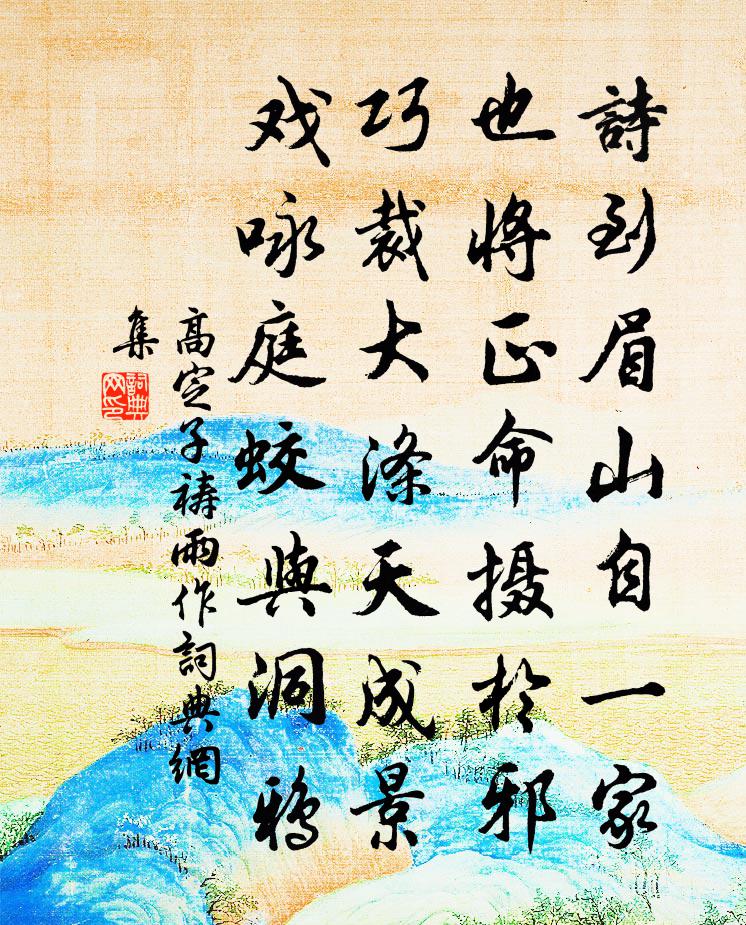 詩到眉山自一家
也將正命摄於邪
巧裁大滌天成景
戏咏庭蛟與洞鴉
高定子禱雨作詞典網
集
詞典
网印